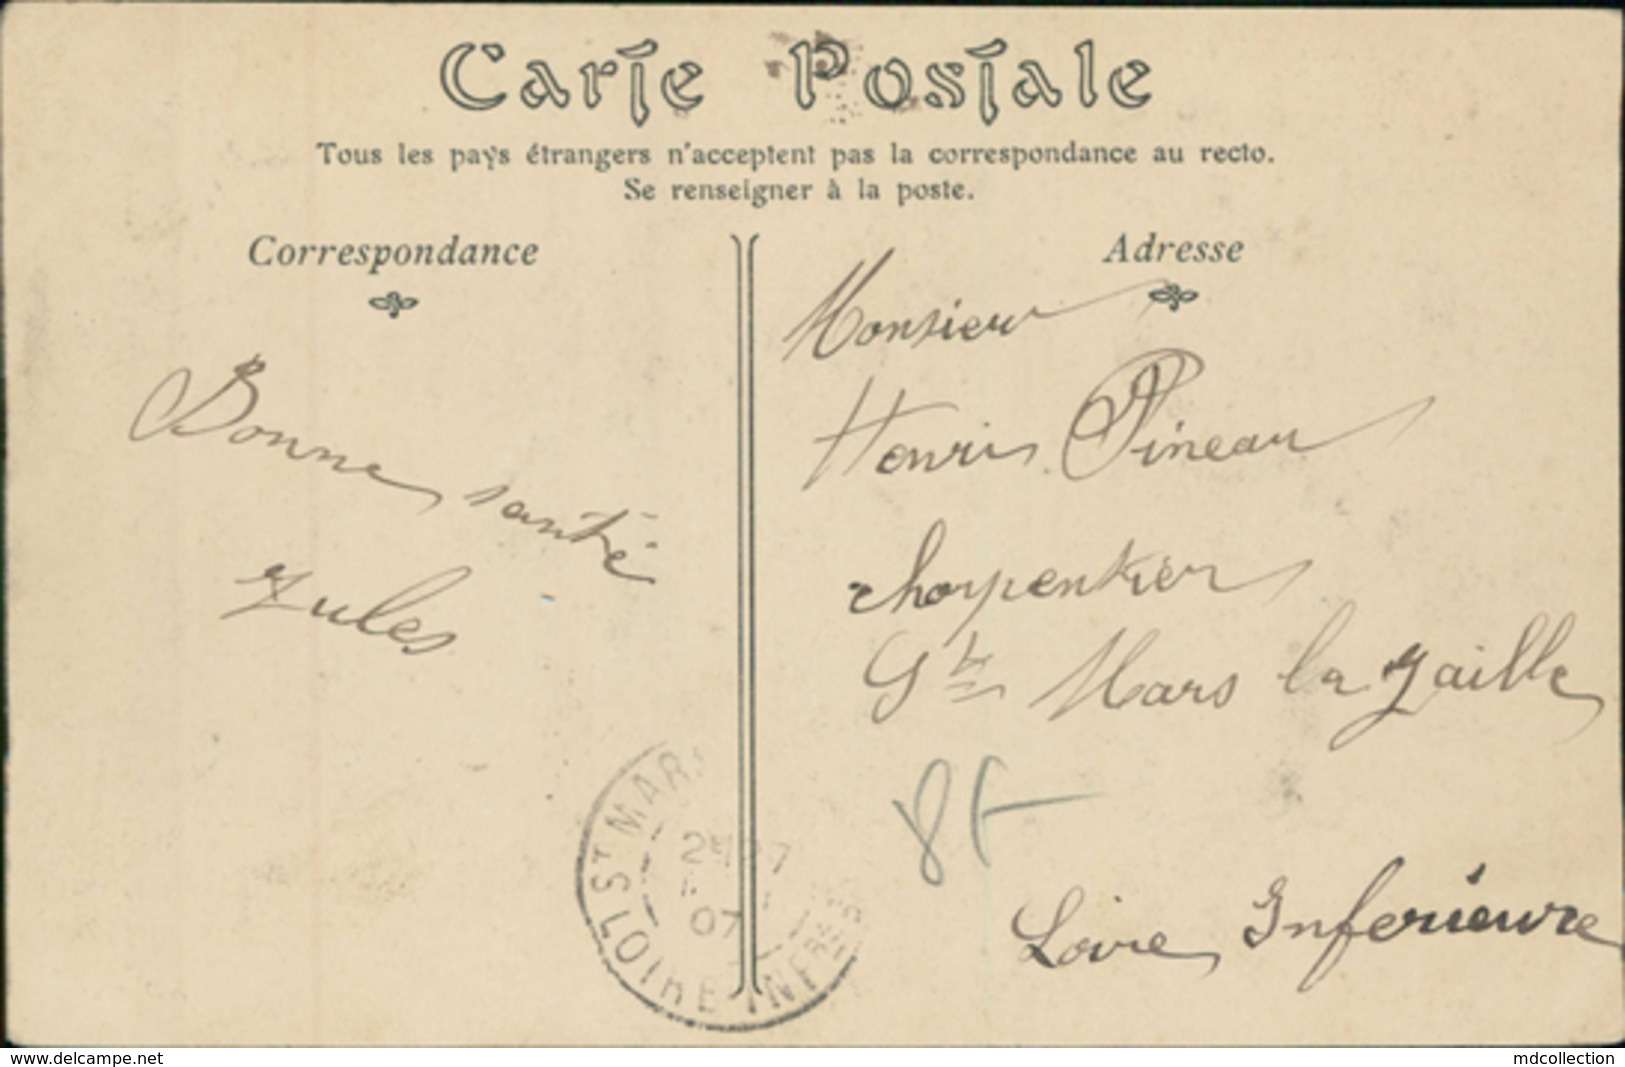 Carte Postale
Tous les pays étrangers n'acceptent pas la correspondance au recto.
Se renseigner à la poste.
Correspondance
Bonne santé
Jules
Adresse
Monsieur
Henri Pineau
charpentier
St Mars la Jaille
8f
Loire Inférieure
ST MAR
07
LOIRE INFRE
www.delcampe.net
mdcollection